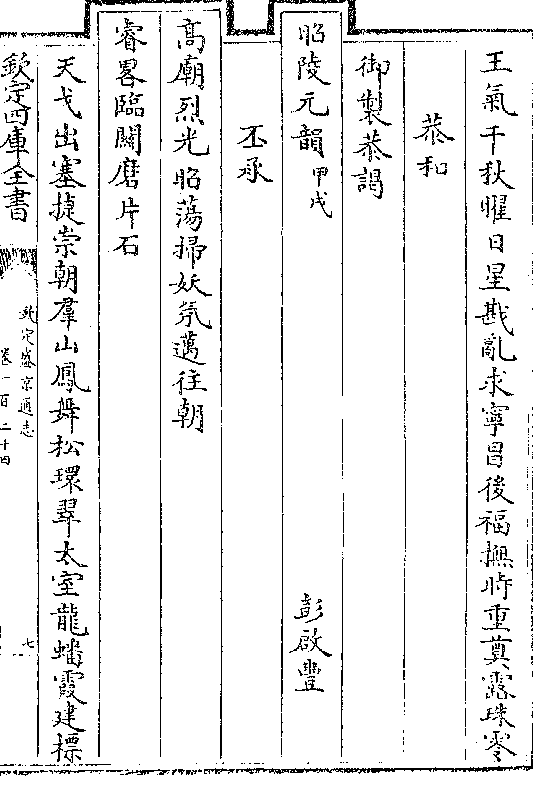 王氣千秋曜日星戡亂求寧昌後福撫時重奠露珠零
恭和
御製恭謁
昭陵元韻甲戌 彭啟豐
丕承
髙廟烈光昭蕩掃妖氛邁往朝
睿畧臨關磨片石
天戈出塞捷崇朝羣山鳳舞松環翠太室龍蟠霞建標
欽定四庫全書
欽定盛京通志
卷一百二十四
七